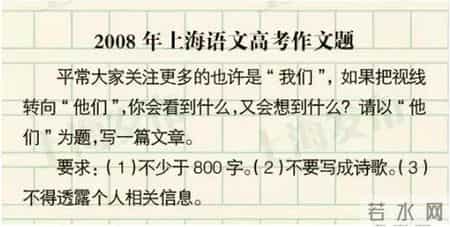 2008年上海语文高考作文题
平常大家关注更多的也许是“我们”，如果把视线
转向“他们”，你会看到什么，又会想到什么？请以“他
们”为题，写一篇文章。
要求：（1）不少于800字。（2）不要写成诗歌。（3）
不得透露个人相关信息。
若水网